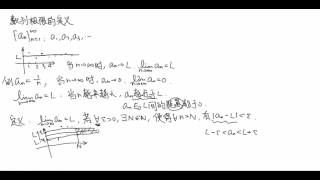 数列极限的定义
{aₙ}ₙ₌₁^∞ : a₁, a₂, a₃, ...
当n→∞时, aₙ→L lim_{n→∞} aₙ = L
例 aₙ = 1/n, 当n→∞时, aₙ→0. lim_{n→∞} aₙ = 0.
lim_{n→∞} aₙ = L : 当n越来越大, aₙ越趋近于L
aₙ与L间的距离趋于0.
定义: lim_{n→∞} aₙ = L, 若∀ε>0, ∃N∈ℕ, 使得∀n>N, 有|aₙ-L|<ε.
L-ε<aₙ<L+ε